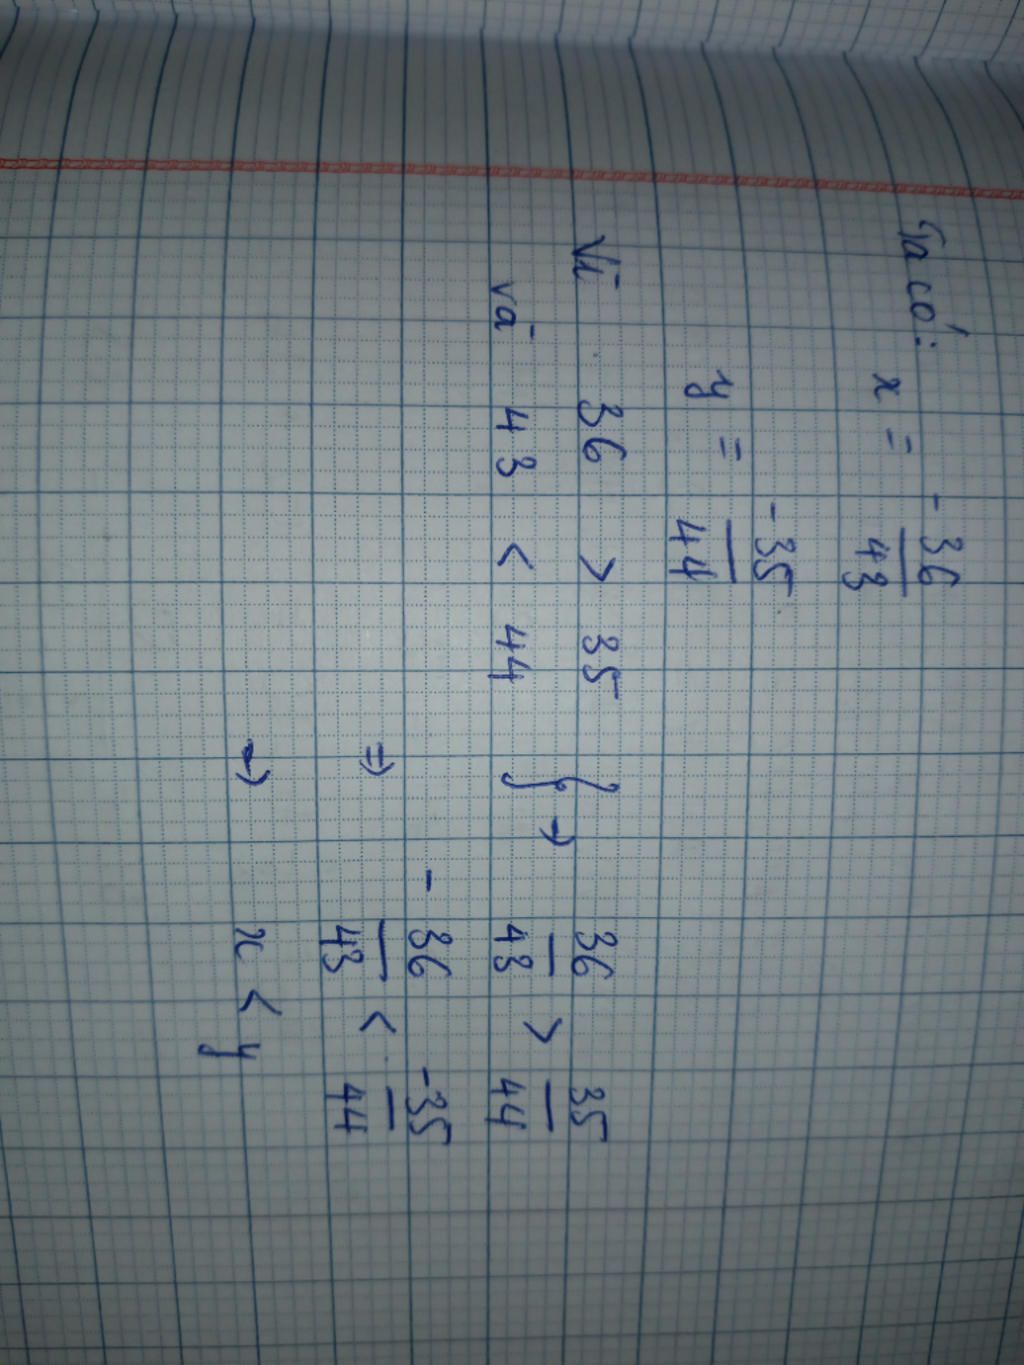 Ta có:
x = -36/43
y = -35/44
Vì 36 > 35
và 43 < 44 } → 36/43 > 35/44
⇒ -36/43 < -35/44
→ x < y